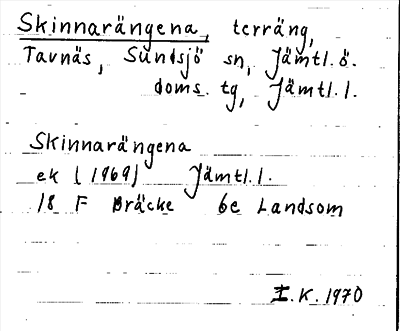 Skinnarängena, terräng,
Tavnäs, Sundsjö sn, Jämtl. ö.
doms. tg, Jämtl. l.
Skinnarängena
ek (1969) Jämtl. l.
18 F Bräcke 6e Landsom
I. K. 1970